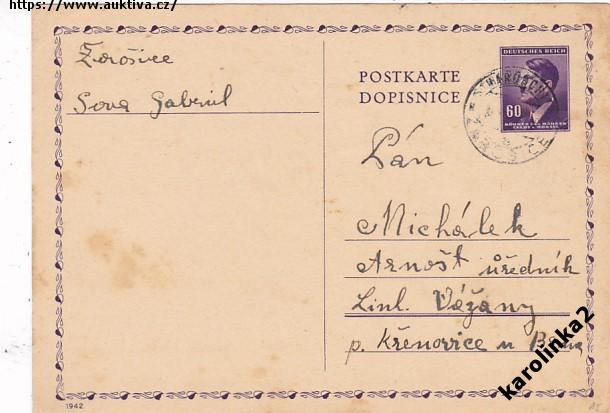 https://www.auktiva.cz/
Zdrošvice
Sova Gabriel
POSTKARTE
DOPISNICE
DEUTSCHES REICH
60
BÖHMEN U. MÄHREN
ČECHY A MORAVA
Pán
Michálek
Arnošt úředník
Linl. Vážany
p. Křenovice u Brna
karolinka2
1942